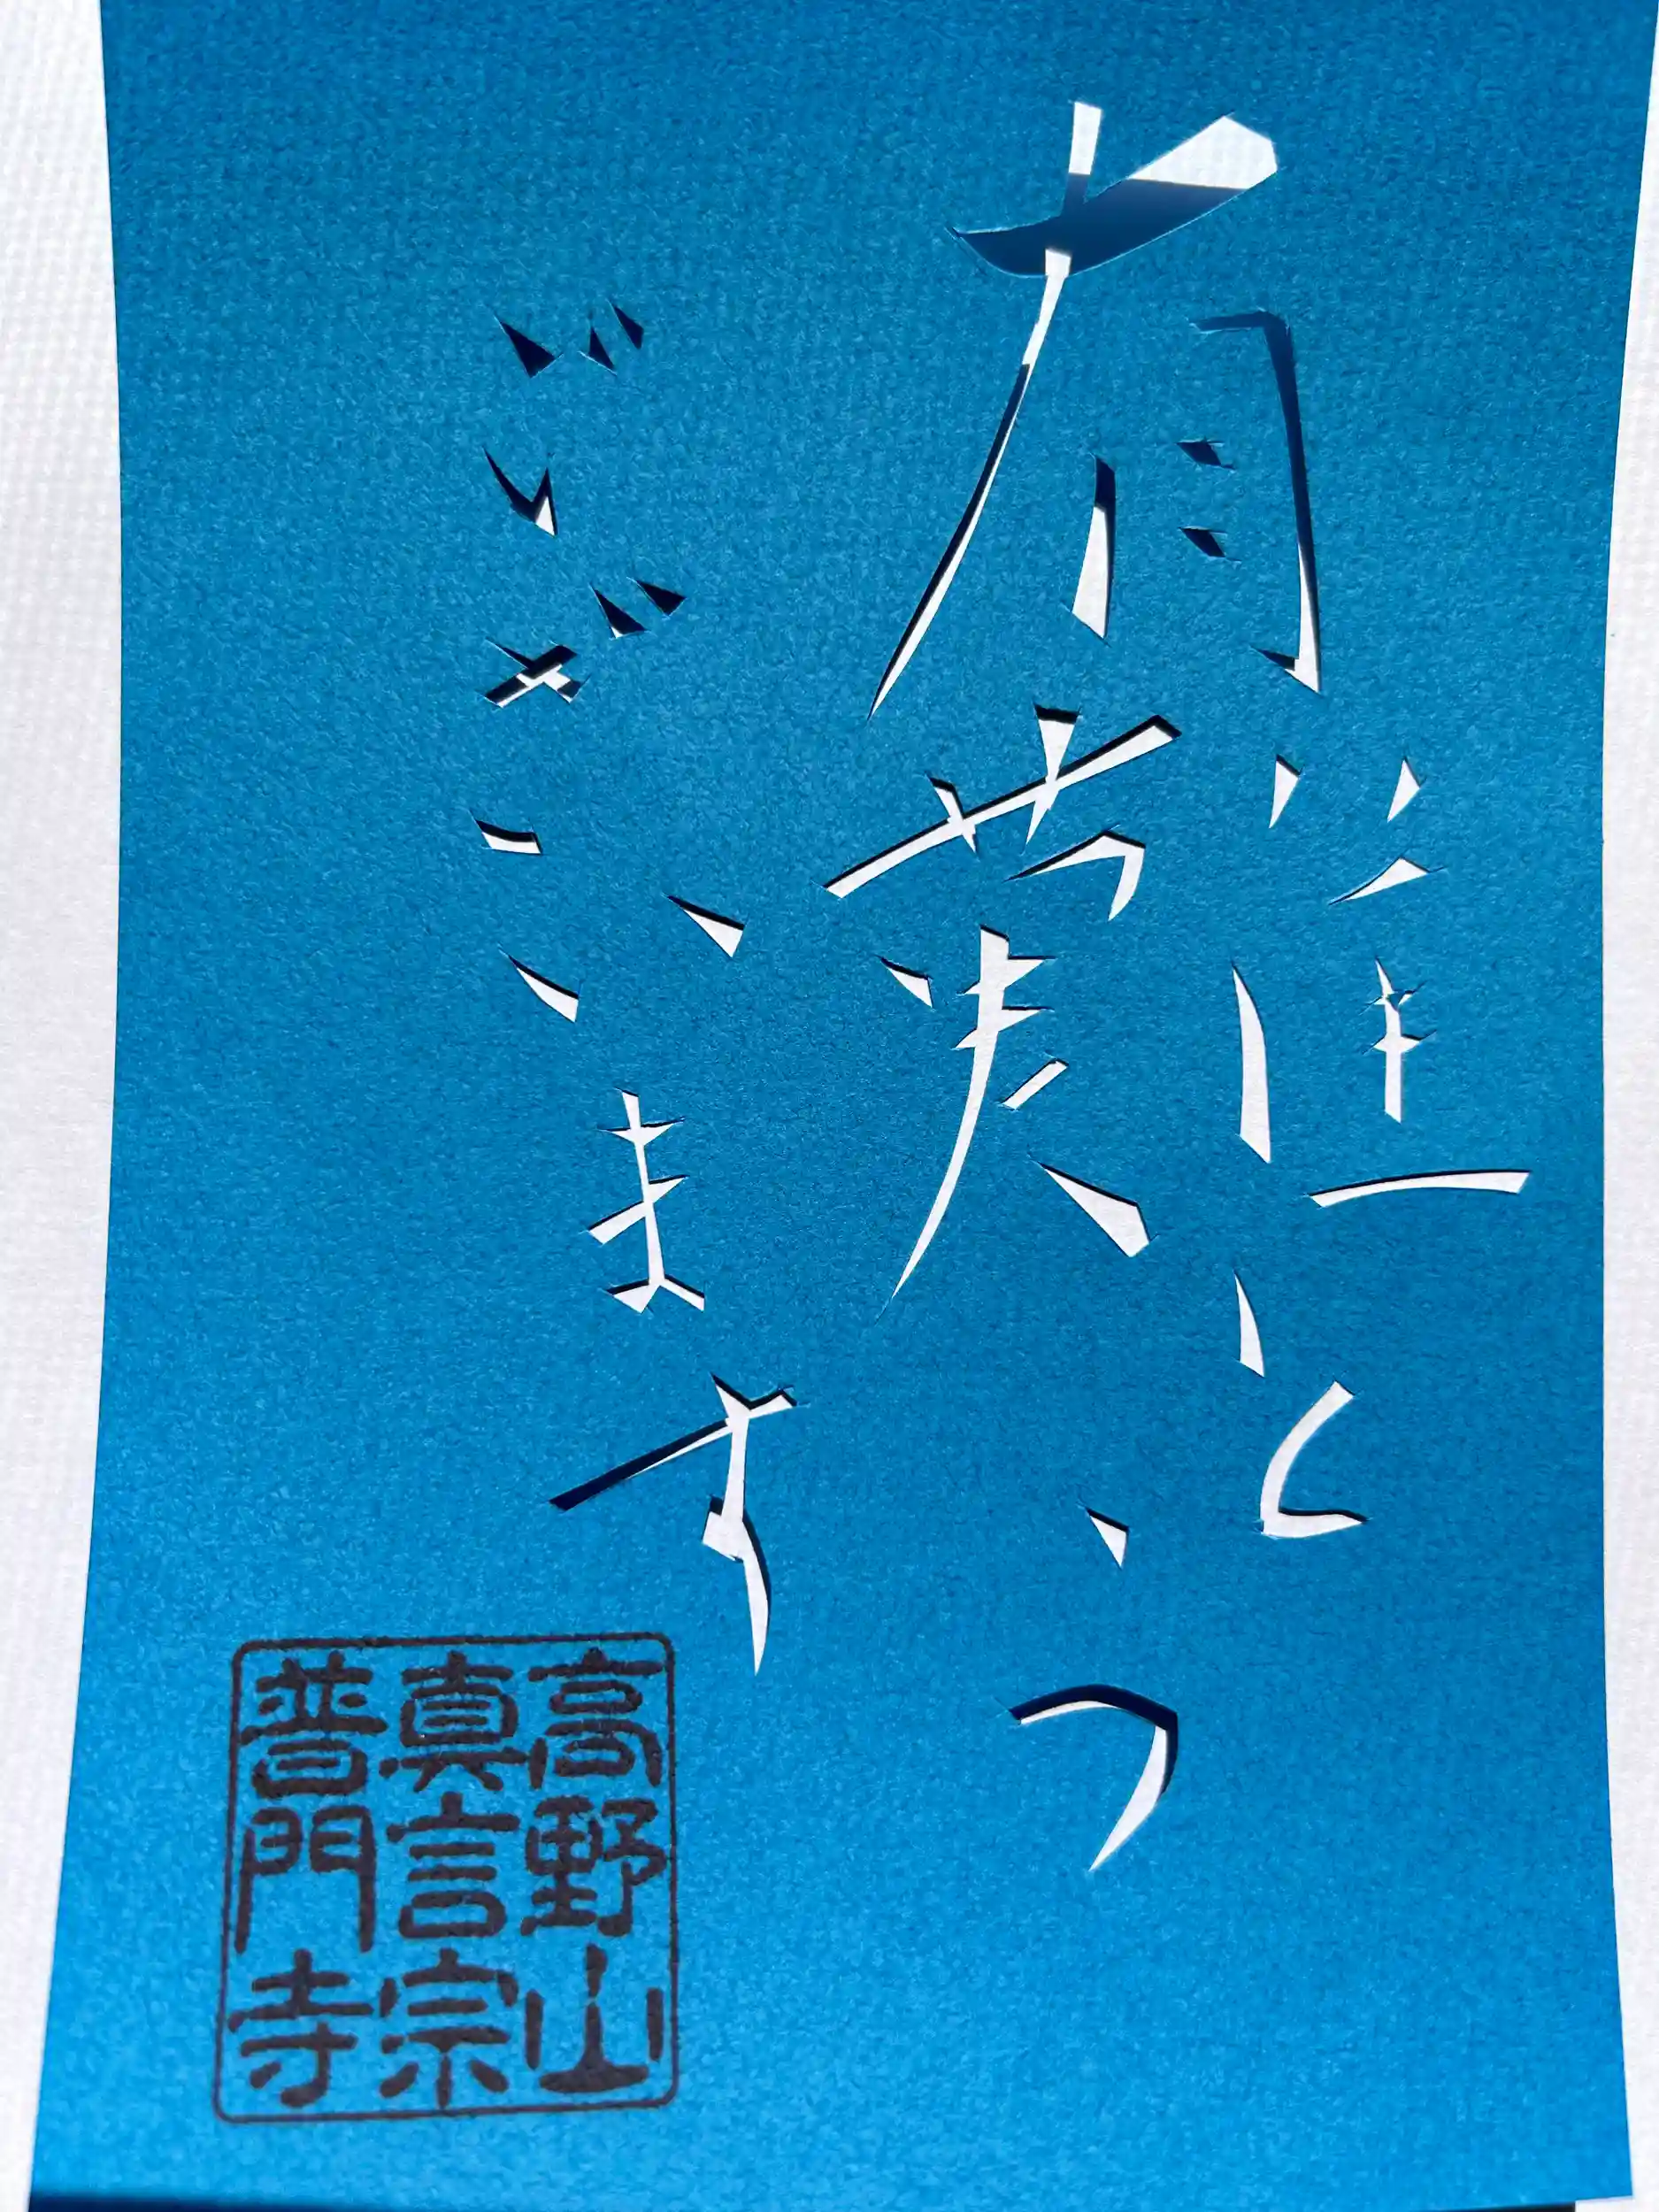 有難とう
ございます
高野山
真言宗
普門寺